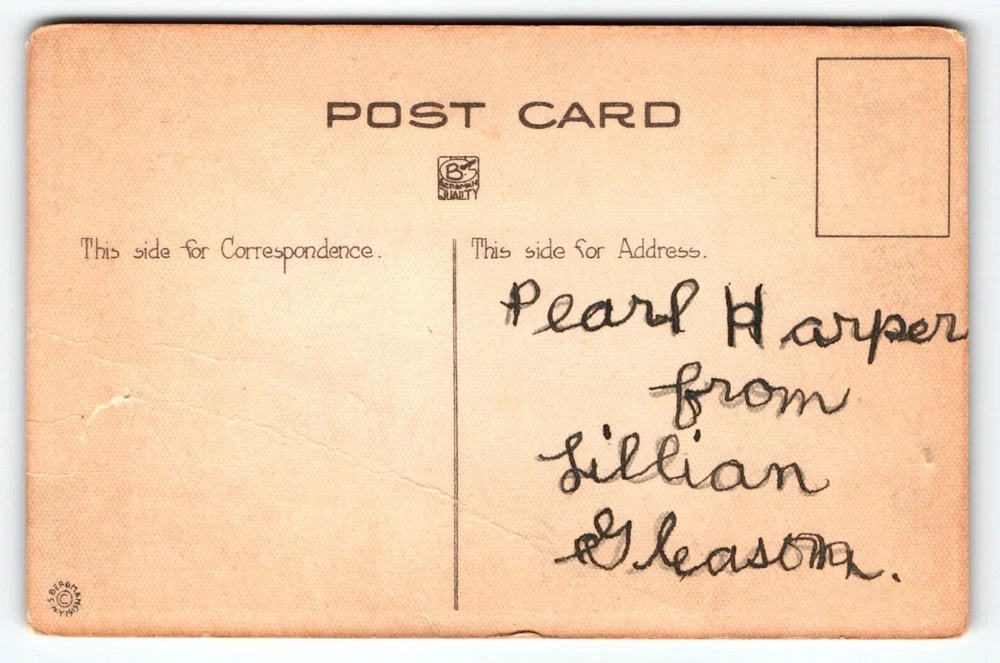 POST CARD
B.S
BERGMAN
QUALITY
This side for Correspondence.
This side for Address.
Pearl Harper
from
Lillian
Gleason.
S. BERGMAN N.Y. 1913 ©